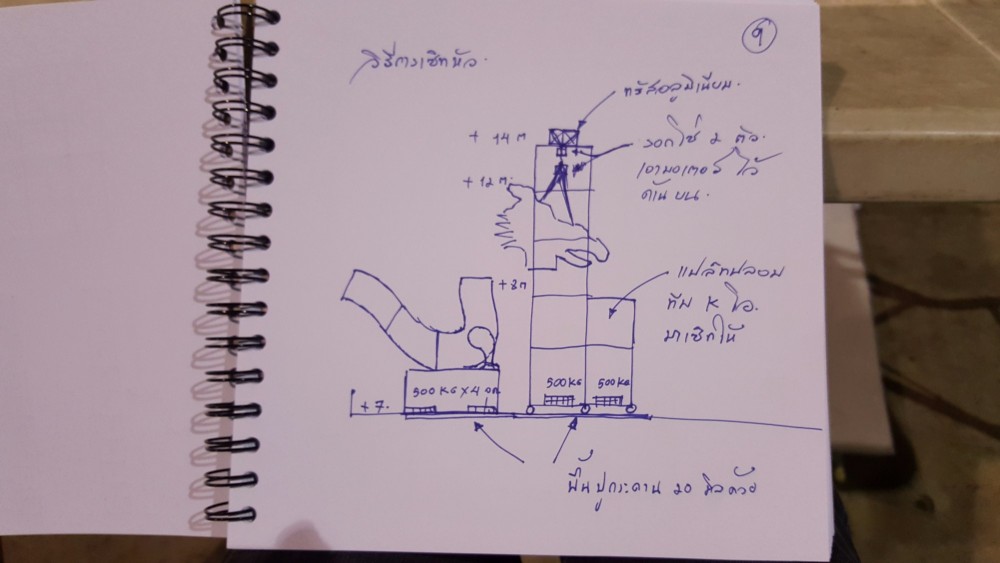 ๑
วิธีการเชิดหัว.
ทรัสอลูมิเนียม.
+ 14 m
รอกโซ่ 2 ตัว.
เอามอเตอร์ไว้
ด้านบน.
+ 12 m.
+8m
แปลิทปลอม
ทีม K โอ.
มาเชิดให้
500 KG X 4
500KG
500KG
+7.
พื้นปูกระดาน 20 มิลด้วย